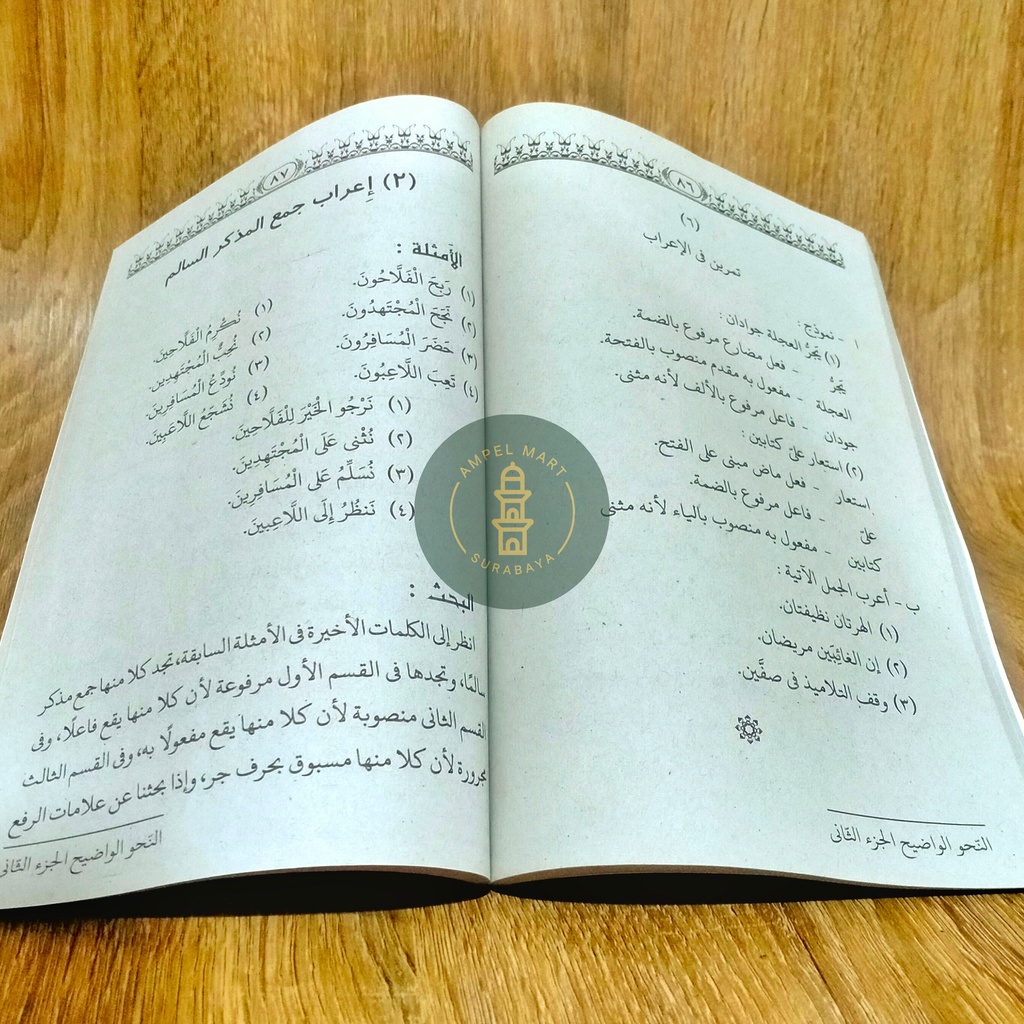 ٨٦
(٦)
تمرين فى الإعراب
١ - نموذج :
(١) يَجُرُّ العجلة جوادان :
يَجُرُّ - فعل مضارع مرفوع بالضمة.
العجلة - مفعول به مقدم منصوب بالفتحة.
جودان - فاعل مرفوع بالألف لأنه مثنى.
(٢) استعار علىّ كتابين :
استعار - فعل ماض مبنى على الفتح.
علىّ - فاعل مرفوع بالضمة.
كتابين - مفعول به منصوب بالياء لأنه مثنى
ب - أعرب الجمل الآتية :
(١) الهرتان نظيفتان.
(٢) إن الغائِبَين مريضان.
(٣) وقف التلاميذ فى صفَّين.
النّحو الواضيح الجزء الثّانى
٨٧
(٢) إِعراب جمع المذكر السالم
الأمثلة :
(١) رَبِحَ الْفَلَّاحُونَ. (١) نُكْرِمُ الْفَلَّاحِينَ.
(٢) نَجَحَ الْمُجْتَهِدُونَ. (٢) نُحِبُّ الْمُجْتَهِدِينَ.
(٣) حَضَرَ الْمُسَافِرُونَ. (٣) نُودِّعُ الْمُسَافِرِينَ.
(٤) تَعِبَ اللَّاعِبُونَ. (٤) نُشَجِّعُ اللَّاعِبِينَ.
(١) نَرْجُو الْخَيْرَ لِلْفَلَّاحِينَ.
(٢) نُثْنِى عَلَى الْمُجْتَهِدِينَ.
(٣) نُسَلِّمُ عَلَى الْمُسَافِرِينَ.
(٤) نَنظُرُ إِلَى اللَّاعِبِينَ.
البحث :
انظر إلى الكلمات الأخيرة فى الأمثلة السابقة، تجد كلا منها جمع مذكر
سالمًا، وتجدها فى القسم الأول مرفوعة لأن كلا منها يقع فاعلًا، وفى
القسم الثانى منصوبة لأن كلا منها يقع مفعولًا به، وفى القسم الثالث
مجرورة لأن كلا منها مسبوق بحرف جر، وإذا بحثنا عن علامات الرفع
النّحو الواضيح الجزء الثّانى
AMPEL MART
SURABAYA